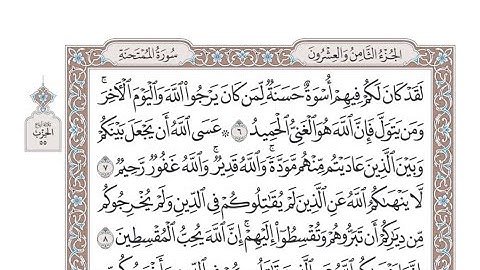 الجُزْءُ الثَّامِنُ وَالعِشْرُونَ
سُورَةُ المُمْتَحَنَةِ
لَقَدْ كَانَ لَكُمْ فِيهِمْ أُسْوَةٌ حَسَنَةٌ لِّمَن كَانَ يَرْجُوا۟ ٱللَّهَ وَٱلْيَوْمَ ٱلْأَخِرَۚ
وَمَن يَتَوَلَّ فَإِنَّ ٱللَّهَ هُوَ ٱلْغَنِىُّ ٱلْحَمِيدُ ٦ ۞ عَسَى ٱللَّهُ أَن يَجْعَلَ بَيْنَكُمْ
وَبَيْنَ ٱلَّذِينَ عَادَيْتُم مِّنْهُم مَّوَدَّةًۚ وَٱللَّهُ قَدِيرٌۚ وَٱللَّهُ غَفُورٌ رَّحِيمٌ ٧
لَّا يَنْهَىٰكُمُ ٱللَّهُ عَنِ ٱلَّذِينَ لَمْ يُقَـٰتِلُوكُمْ فِى ٱلدِّينِ وَلَمْ يُخْرِجُوكُم
مِّن دِيَـٰرِكُمْ أَن تَبَرُّوهُمْ وَتُقْسِطُوٓا۟ إِلَيْهِمْۚ إِنَّ ٱللَّهَ يُحِبُّ ٱلْمُقْسِطِينَ ٨
الحِزْب
٥٥